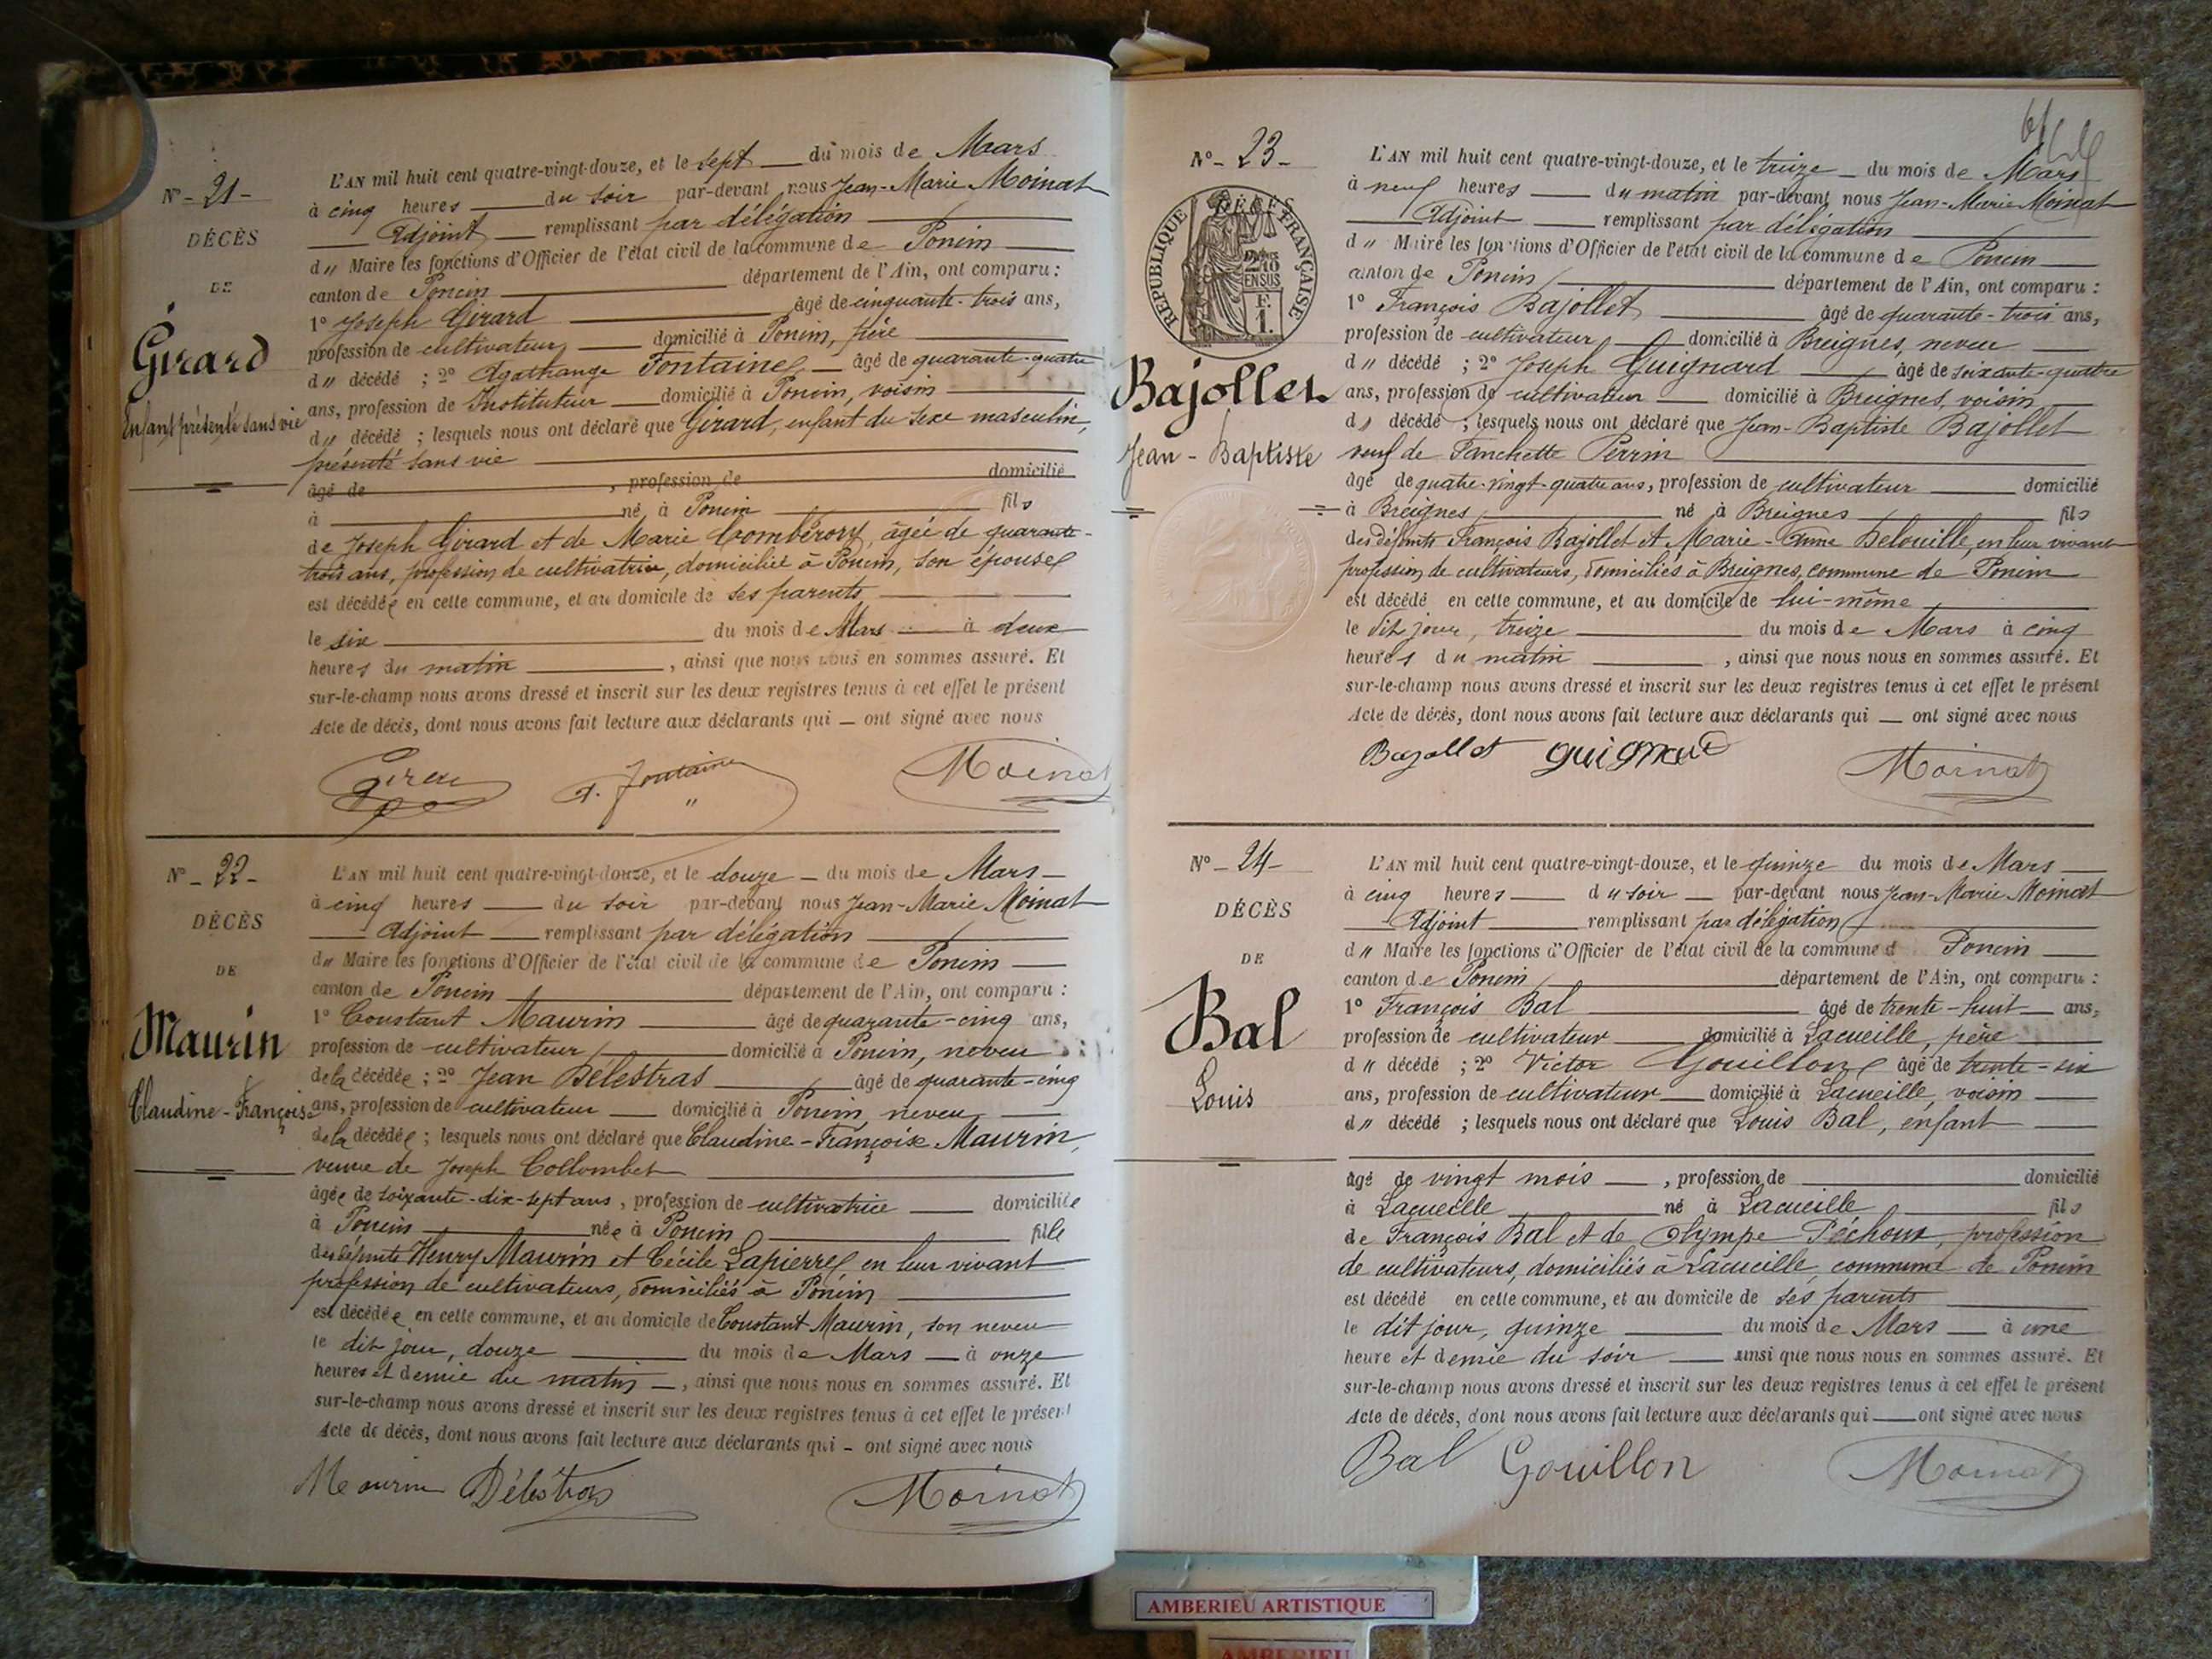 N° - 21 -
DÉCÈS
DE
Girard
Enfant présenté sans vie
L'AN mil huit cent quatre-vingt-douze, et le sept du mois de Mars
à cinq heures du soir par-devant nous Jean-Marie Moinat
Adjoint remplissant par délégation
d" Maire les fonctions d'Officier de l'état civil de la commune de Poncin
canton de Poncin département de l'Ain, ont comparu :
1° Joseph Girard âgé de cinquante-trois ans,
profession de cultivateur domicilié à Poncin, père
d" décédé ; 2° Agathange Fontaine âgé de quarante-quatre
ans, profession de Instituteur domicilié à Poncin, voisin
d" décédé ; lesquels nous ont déclaré que Girard, enfant du sexe masculin,
présenté sans vie
âgé de , profession de domicilié
à né à Poncin fils
de Joseph Girard et de Marie âgée de quarante-
trois ans, profession de cultivatrice, domiciliée à Poncin, son épouse
est décédée en cette commune, et au domicile de ses parents
le six du mois de Mars à deux
heures du matin , ainsi que nous nous en sommes assuré. Et
sur-le-champ nous avons dressé et inscrit sur les deux registres tenus à cet effet le présent
Acte de décès, dont nous avons fait lecture aux déclarants qui — ont signé avec nous
A. Fontaine Moinat
N° - 22 -
DÉCÈS
DE
Maurin
Claudine-Françoise
L'AN mil huit cent quatre-vingt-douze, et le douze du mois de Mars
à cinq heures du soir par-devant nous Jean-Marie Moinat
Adjoint remplissant par délégation
d" Maire les fonctions d'Officier de l'état civil de la commune de Poncin
canton de Poncin département de l'Ain, ont comparu :
1° Constant Maurin âgé de quarante-cinq ans,
profession de cultivateur domicilié à Poncin, neveu
de la décédée ; 2° Jean Delestras âgé de quarante-cinq
ans, profession de cultivateur domicilié à Poncin, neveu
de la décédée ; lesquels nous ont déclaré que Claudine-Françoise Maurin,
veuve de Joseph Collombet
âgée de soixante-dix-sept ans, profession de cultivatrice domiciliée
à Poncin née à Poncin fille
des défunts Henry Maurin et Cécile Lapierre en leur vivant
profession de cultivateurs, domiciliés à Poncin
est décédée en cette commune, et au domicile de Constant Maurin, son neveu
le dit jour, douze du mois de Mars à onze
heures et demie du matin , ainsi que nous nous en sommes assuré. Et
sur-le-champ nous avons dressé et inscrit sur les deux registres tenus à cet effet le présent
Acte de décès, dont nous avons fait lecture aux déclarants qui - ont signé avec nous
Maurin Délestras Moinat
N° - 23 -
RÉPUBLIQUE FRANÇAISE
Bajollet
Jean-Baptiste
L'AN mil huit cent quatre-vingt-douze, et le treize du mois de Mars
à neuf heures du matin par-devant nous Jean-Marie Moinat
Adjoint remplissant par délégation
d" Maire les fonctions d'Officier de l'état civil de la commune de Poncin
canton de Poncin département de l'Ain, ont comparu :
1° François Bajollet âgé de quarante-trois ans,
profession de cultivateur domicilié à Breignes, neveu
d" décédé ; 2° Joseph Guignard âgé de soixante-quatre
ans, profession de cultivateur domicilié à Breignes, voisin
d" décédé ; lesquels nous ont déclaré que Jean-Baptiste Bajollet
veuf de Fanchette Perrin
âgé de quatre-vingt-quatre ans, profession de cultivateur domicilié
à Breignes né à Breignes fils
des défunts François Bajollet et Marie-Anne Delouille, en leur vivant
profession de cultivateurs, domiciliés à Breignes, commune de Poncin
est décédé en cette commune, et au domicile de lui-même
le dit jour, treize du mois de Mars à cinq
heures du matin , ainsi que nous nous en sommes assuré. Et
sur-le-champ nous avons dressé et inscrit sur les deux registres tenus à cet effet le présent
Acte de décès, dont nous avons fait lecture aux déclarants qui — ont signé avec nous
Bajollet guignard Moinat
N° - 24 -
DÉCÈS
DE
Bal
Louis
L'AN mil huit cent quatre-vingt-douze, et le quinze du mois de Mars
à cinq heures du soir par-devant nous Jean-Marie Moinat
Adjoint remplissant par délégation
d" Maire les fonctions d'Officier de l'état civil de la commune d Poncin
canton de Poncin département de l'Ain, ont comparu :
1° François Bal âgé de trente-huit ans,
profession de cultivateur domicilié à Lacueille, père
d" décédé ; 2° Victor Gouillon âgé de trente-six
ans, profession de cultivateur domicilié à Lacueille, voisin
d" décédé ; lesquels nous ont déclaré que Louis Bal, enfant
âgé de vingt mois , profession de domicilié
à Lacueille né à Lacueille fils
de François Bal et de Olympe Péchoux, profession
de cultivateurs, domiciliés à Lacueille, commune de Poncin
est décédé en cette commune, et au domicile de ses parents
le dit jour, quinze du mois de Mars à une
heure et demie du soir ainsi que nous nous en sommes assuré. Et
sur-le-champ nous avons dressé et inscrit sur les deux registres tenus à cet effet le présent
Acte de décès, dont nous avons fait lecture aux déclarants qui — ont signé avec nous
Bal Gouillon Moinat
AMBERIEU ARTISTIQUE
AMBERIEU